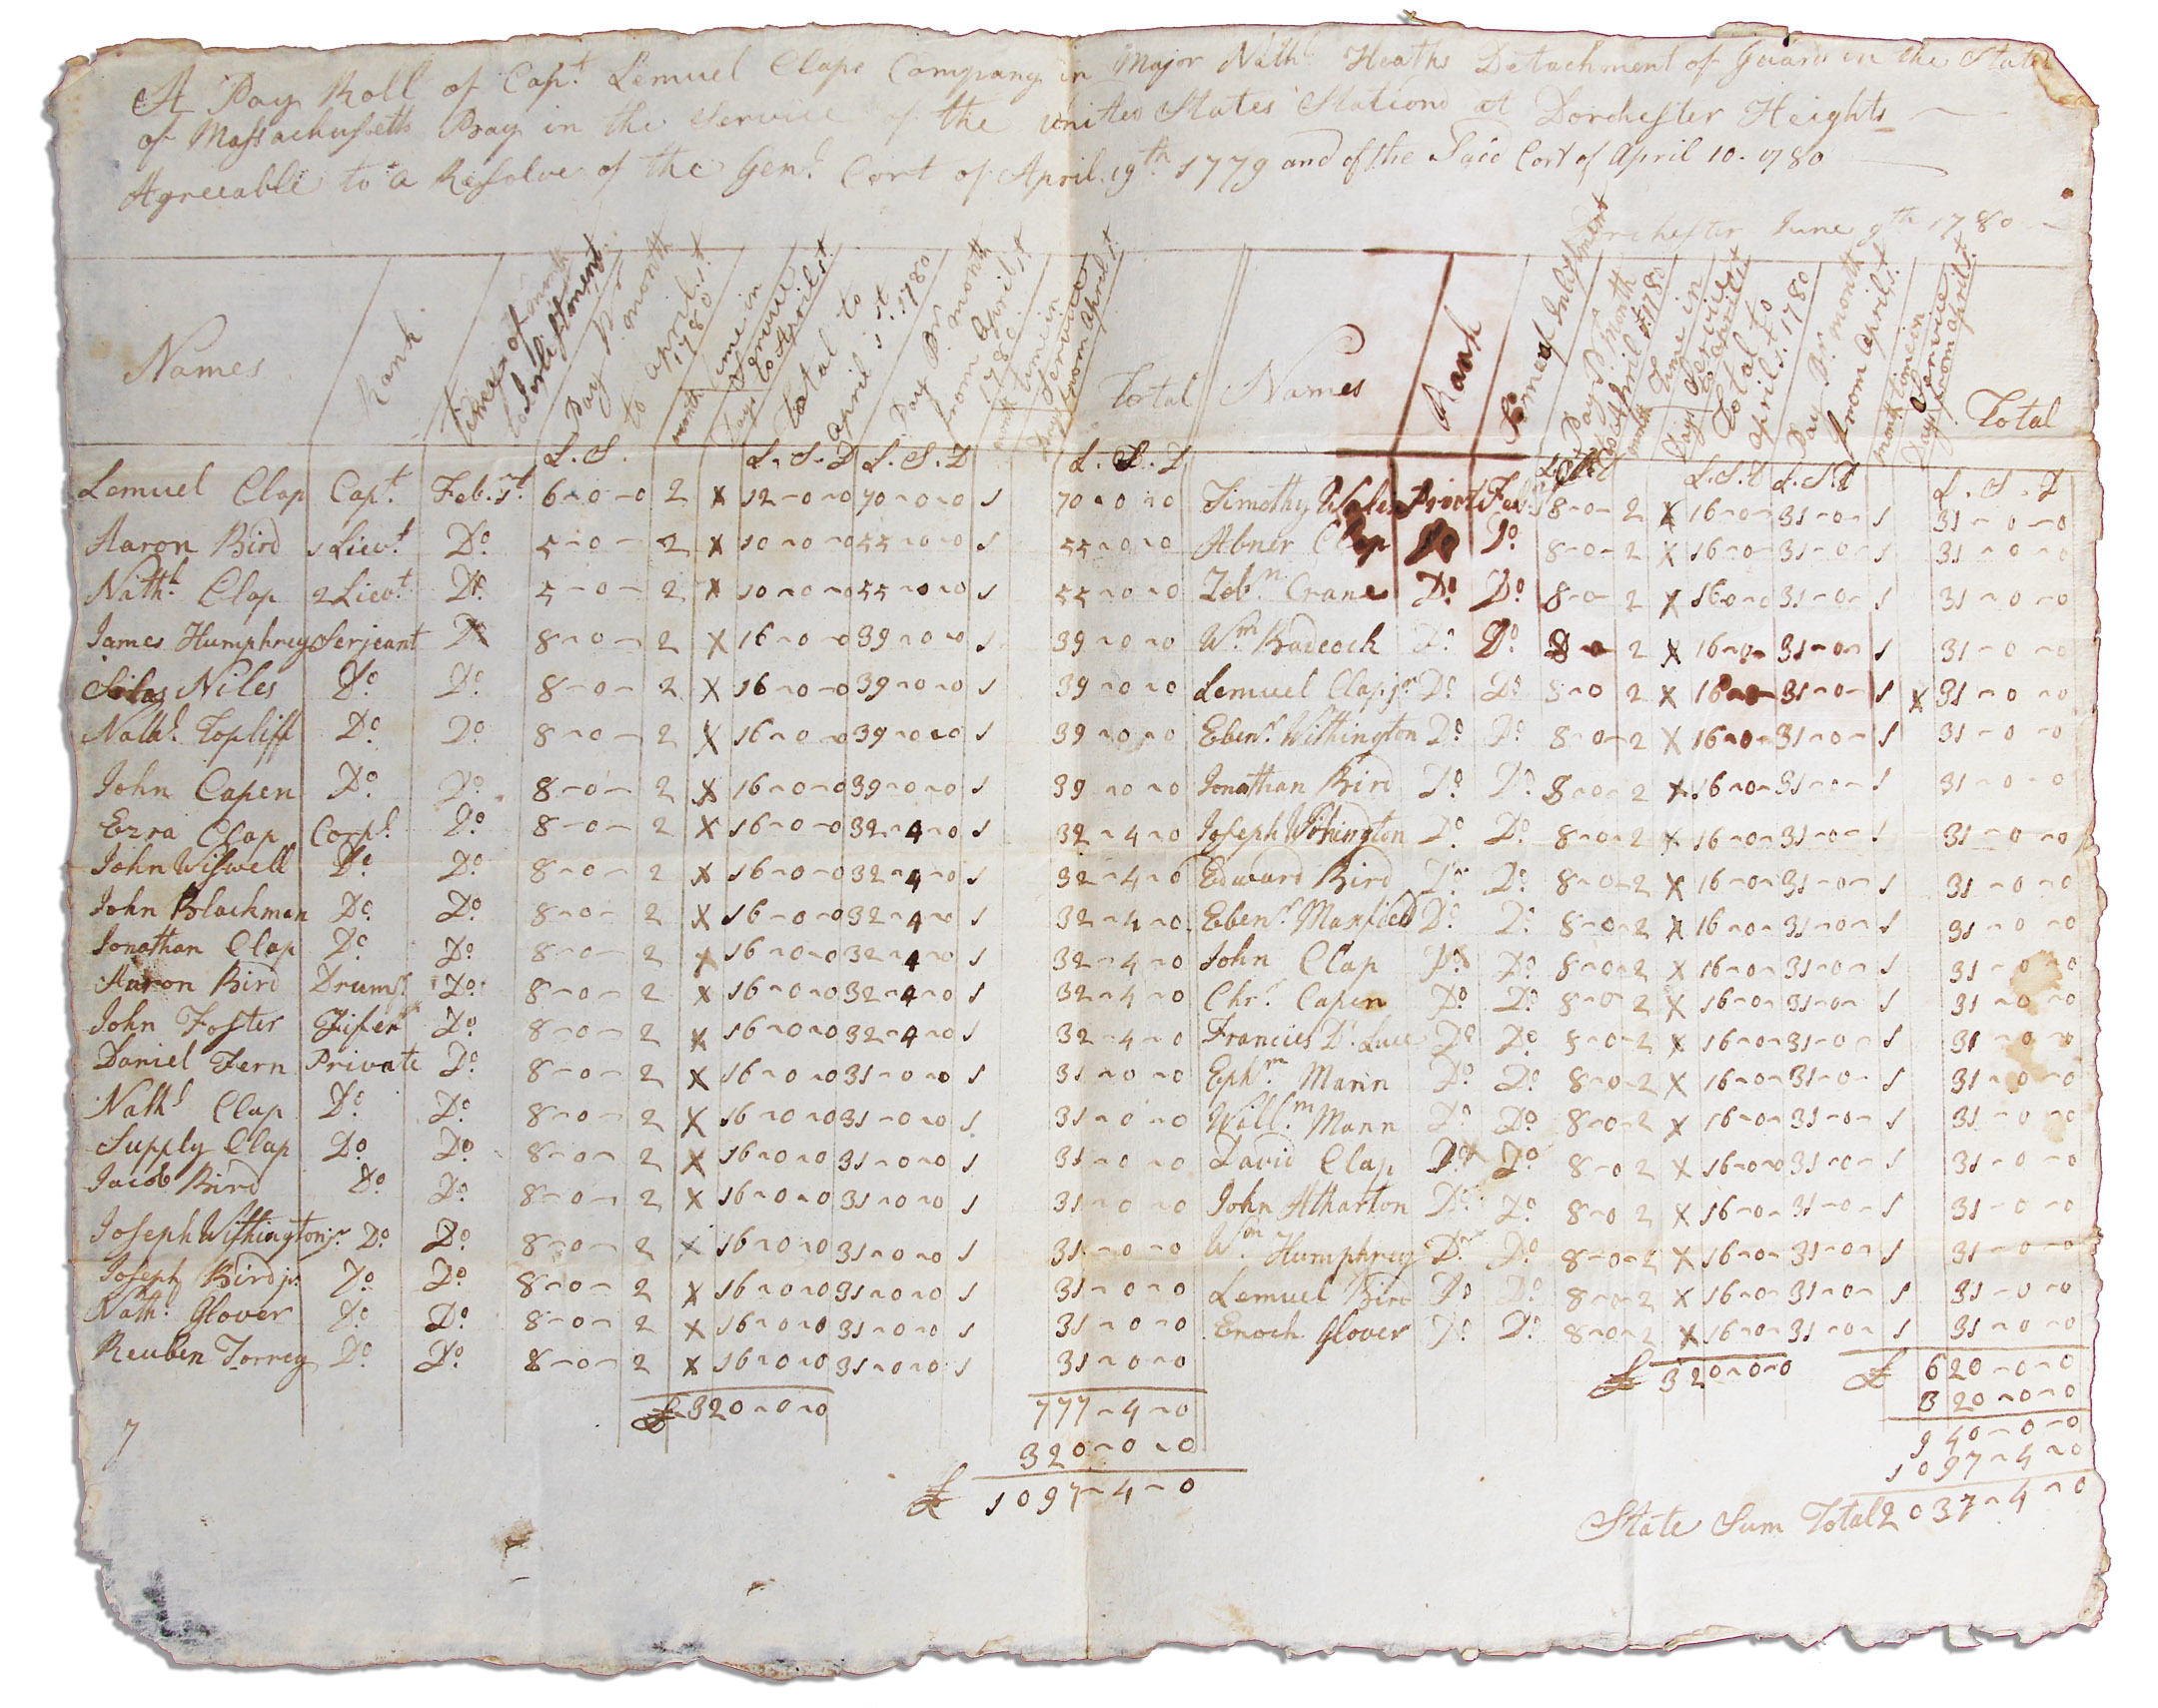 A Pay Roll of Capt. Lemuel Claps Company in Major Nathl. Heaths Detachment of Guards in the State
of Massachusetts Bay in the Service of the United States Stationd at Dorchester Heights
Agreeable to a Resolve of the Genl. Cort of April 19th 1779 and of the Said Cort of April 10. 1780
Dorchester June 9th 1780
Names Rank Time of Inlistment Pay Pr. month to April 1st 1780 month Days Time in Service to April 1st Total to April 1st. 1780 Pay Pr. month from April 1st 1780 month Days time in Service from April 1st Total Names Rank Time of Inlistment Pay Pr. month to April 1st. 1780 month Days Time in Service to April 1st Total to April 1st. 1780 Pay Pr. month from April 1st month Days time in Service from April 1st. Total
L. S. L. S. D L. S. D L. S. D L. S. D L. S. D L. S. D
Lemuel Clap Capt. Feb. 1st. 6-0-0 2 X 12-0-0 70-0-0 1 70-0-0 Timothy Wales Privt Feb. 8-0- 2 X 16-0- 31-0- 1 31-0-0
Aaron Bird 1 Lievt. Do. 5-0- 2 X 10-0-0 55-0-0 1 55-0-0 Abner Clap Do Do. 8-0- 2 X 16-0- 31-0- 1 31-0-0
Nathl. Clap 2 Lievt. Do. 5-0- 2 X 10-0-0 55-0-0 1 55-0-0 Zebn. Crane Do. Do. 8-0- 2 X 16-0-0 31-0- 1 31-0-0
James Humphrey Serjeant Do 8-0- 2 X 16-0-0 39-0-0 1 39-0-0 Wm. Badcock Do. Do. 8-0- 2 X 16-0- 31-0- 1 31-0-0
Silas Niles Do. Do. 8-0- 2 X 16-0-0 39-0-0 1 39-0-0 Lemuel Clap jr Do. Do. 8-0 2 X 16-0-0 31-0- 1 X 31-0-0
Nathl. Topliff Do. Do. 8-0- 2 X 16-0-0 39-0-0 1 39-0-0 Ebenr. Withington Do. Do. 8-0- 2 X 16-0- 31-0- 1 31-0-0
John Capen Do. Do. 8-0- 2 X 16-0-0 39-0-0 1 39-0-0 Jonathan Bird Do. Do. 8-0- 2 X 16-0- 31-0- 1 31-0-0
Ezra Clap Corpl. Do. 8-0- 2 X 16-0-0 32-4-0 1 32-4-0 Joseph Withington Do. Do. 8-0-2 X 16-0- 31-0- 1 31-0-0
John Wiswell Do. Do. 8-0- 2 X 16-0-0 32-4-0 1 32-4-0 Edward Bird Do. Do. 8-0-2 X 16-0- 31-0- 1 31-0-0
John Blackman Do. Do. 8-0- 2 X 16-0-0 32-4-0 1 32-4-0 Ebenr. Maxfield Do. Do. 8-0-2 X 16-0- 31-0- 1 31-0-0
Jonathan Clap Do. Do. 8-0- 2 X 16-0-0 32-4-0 1 32-4-0 John Clap Do. Do. 8-0-2 X 16-0- 31-0- 1 31-0-0
Aaron Bird Drumr. Do. 8-0- 2 X 16-0-0 32-4-0 1 32-4-0 Chrr. Capen Do. Do. 8-0-2 X 16-0- 31-0- 1 31-0-0
John Foster Fifer Do. 8-0- 2 X 16-0-0 32-4-0 1 32-4-0 Francies D. Luce Do. Do. 8-0-2 X 16-0- 31-0- 1 31-0-0
Daniel Fern Private Do. 8-0- 2 X 16-0-0 31-0-0 1 31-0-0 Ephm. Mann Do. Do. 8-0-2 X 16-0- 31-0- 1 31-0-0
Nathl Clap Do. Do. 8-0- 2 X 16-0-0 31-0-0 1 31-0-0 Willm. Mann Do. Do. 8-0-2 X 16-0- 31-0- 1 31-0-0
Supply Clap Do. Do. 8-0- 2 X 16-0-0 31-0-0 1 31-0-0 David Clap Do. Do. 8-0 2 X 16-0-0 31-0- 1 31-0-0
Jacob Bird Do. Do. 8-0- 2 X 16-0-0 31-0-0 1 31-0-0 John Atharton Do. Do. 8-0 2 X 16-0- 31-0- 1 31-0-0
Joseph Withington jr Do. Do. 8-0- 2 X 16-0-0 31-0-0 1 31-0-0 Wm. Humphrey Do. Do. 8-0-2 X 16-0- 31-0- 1 31-0-0
Joseph Bird jr. Do. Do. 8-0- 2 X 16-0-0 31-0-0 1 31-0-0 Lemuel Bird Do. Do. 8-0-2 X 16-0- 31-0- 1 31-0-0
Nathl. Glover Do. Do. 8-0- 2 X 16-0-0 31-0-0 1 31-0-0 Enoch Glover Do. Do. 8-0-2 X 16-0- 31-0- 1 31-0-0
Reuben Torrey Do. Do. 8-0- 2 X 16-0-0 31-0-0 1 31-0-0 £ 320-0-0 £ 620-0-0
£ 320-0-0 777-4-0 320-0-0
7 320-0-0 940-0-0
£ 1097-4-0 1097-4-0
State Sum Total 2037-4-0